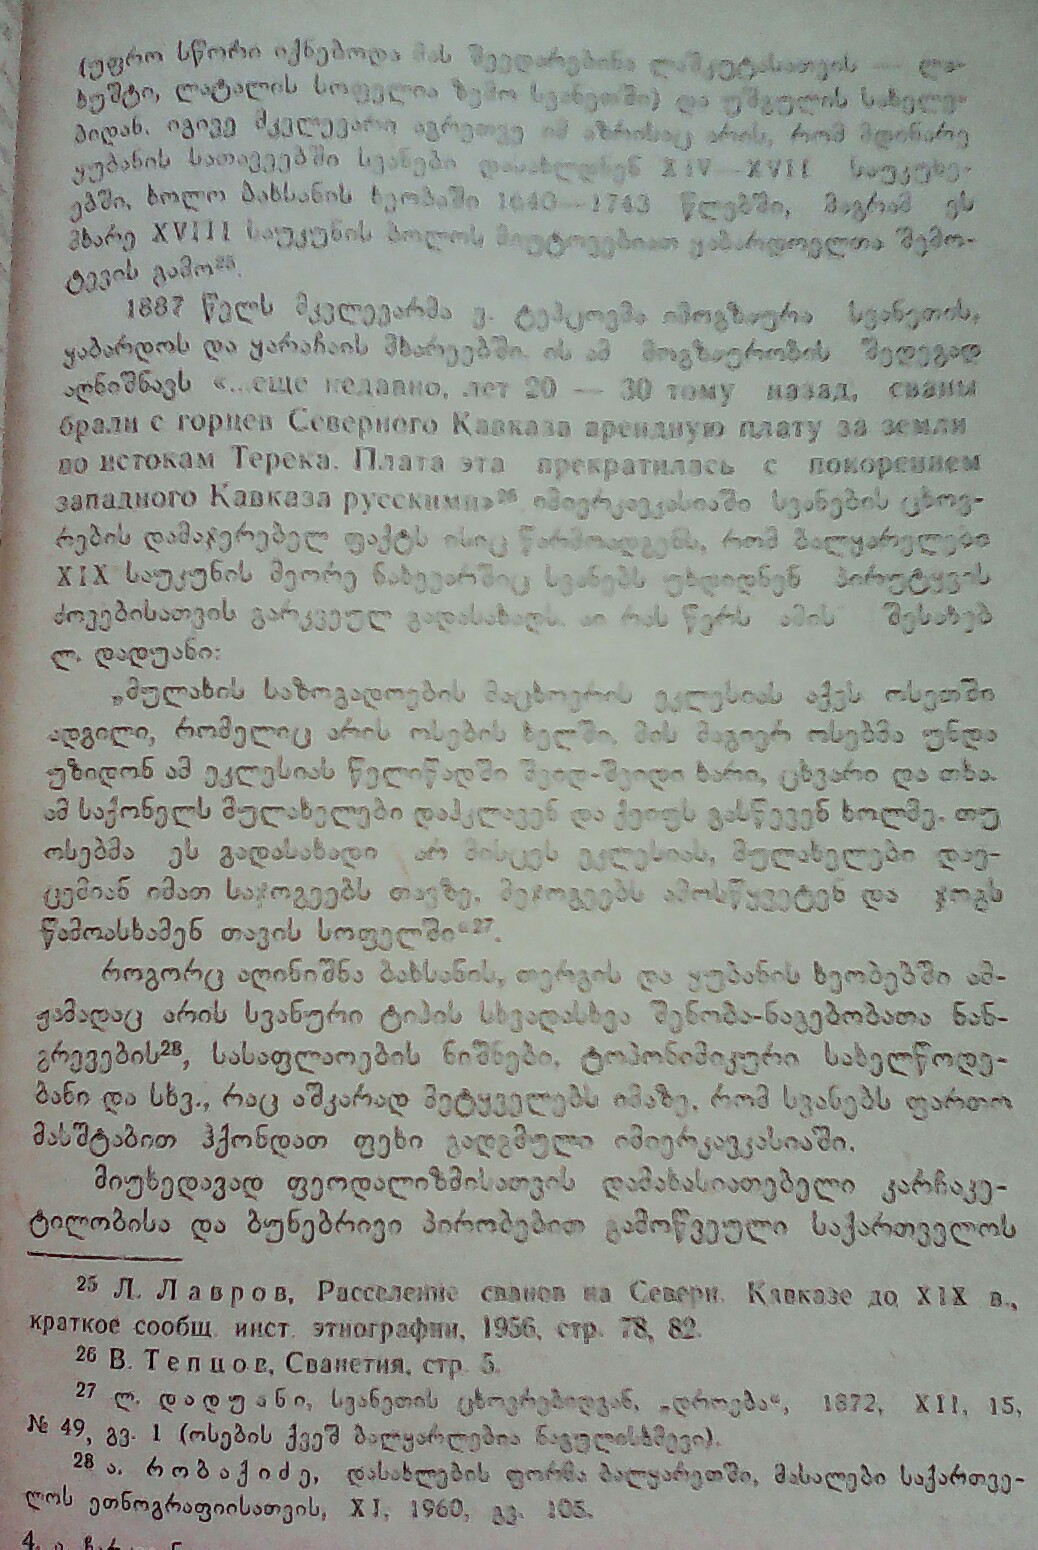 (უფრო სწორი იქნებოდა მას შეედარებინა ლაშკუტასათვის — ლა-
ხუშტი, ლატალის სოფელია ზემო სვანეთში) და უშგულის სახელე-
ბიდან. იგივე მკვლევარი აგრეთვე იმ აზრისაც არის, რომ მდინარე
ყუბანის სათავეებში სვანები დასახლდნენ XIV—XVII საუკუნე-
ებში, ხოლო ბახსანის ხეობაში 1640—1743 წლებში, მაგრამ ეს
მხარე XVIII საუკუნის ბოლოს მიუტოვებიათ ყაბარდოელთა შემო-
ტევის გამო²⁵.
1887 წელს მკვლევარმა ვ. ტეპცოვმა იმოგზაურა სვანეთის,
ყაბარდოს და ყარაჩაის მხარეებში. ის ამ მოგზაურობის შედეგად
აღნიშნავს «...еще недавно, лет 20 — 30 тому назад, сваны
брали с горцев Северного Кавказа арендную плату за земли
по истокам Терека. Плата эта прекратилась с покорением
западного Кавказа русскими»²⁶ იმიერკავკასიაში სვანების ცხოვ-
რების დამაჯერებელ ფაქტს ისიც წარმოადგენს, რომ ბალყარელები
XIX საუკუნის მეორე ნახევარშიც სვანებს უხდიდნენ პირუტყვის
ძოვებისათვის გარკვეულ გადასახადს. აი რას წერს ამის შესახებ
ლ. დადუანი:
„მულახის საზოგადოების მაცხოვრის ეკლესიას აქვს ოსეთში
ადგილი, რომელიც არის ოსების ხელში. მის მაგიერ ოსებმა უნდა
უზიდონ ამ ეკლესიას წელიწადში შვიდ-შვიდი ხარი, ცხვარი და თხა.
ამ საქონელს მულახელები დაჰკლავენ და ქეიფს გასწევენ ხოლმე. თუ
ოსებმა ეს გადასახადი არ მისცეს ეკლესიას, მულახელები დაე-
ცემიან იმათ საჯოგეებს თავზე, მეჯოგეებს ამოსწყვეტენ და ჯოგს
წამოასხამენ თავის სოფელში“²⁷.
როგორც აღინიშნა ბახსანის, თერგის და ყუბანის ხეობებში ამ-
ჟამადაც არის სვანური ტიპის სხვადასხვა შენობა-ნაგებობათა ნან-
გრევების²⁸, სასაფლაოების ნიშნები, ტოპონიმიკური სახელწოდე-
ბანი და სხვ., რაც აშკარად მეტყველებს იმაზე, რომ სვანებს ფართო
მასშტაბით ჰქონდათ ფეხი გადგმული იმიერკავკასიაში.
მიუხედავად ფეოდალიზმისათვის დამახასიათებელი კარჩაკე-
ტილობისა და ბუნებრივი პირობებით გამოწვეული საქართველოს
²⁵ Л. Лавров, Расселение сванов на Северн. Кавказе до XIX в.,
краткое сообщ. инст. этнографии, 1956, стр. 78, 82.
²⁶ В. Тепцов, Сванетия, стр. 5.
²⁷ ლ. დადუანი, სვანეთის ცხოვრებიდგან, „დროება“, 1872, XII, 15,
№ 49, გვ. 1 (ოსების ქვეშ ბალყარლებია ნაგულისხმევი).
²⁸ ა. რობაქიძე, დასახლების ფორმა ბალყარეთში, მასალები საქართვე-
ლოს ეთნოგრაფიისათვის, XI, 1960, გვ. 105.
4.